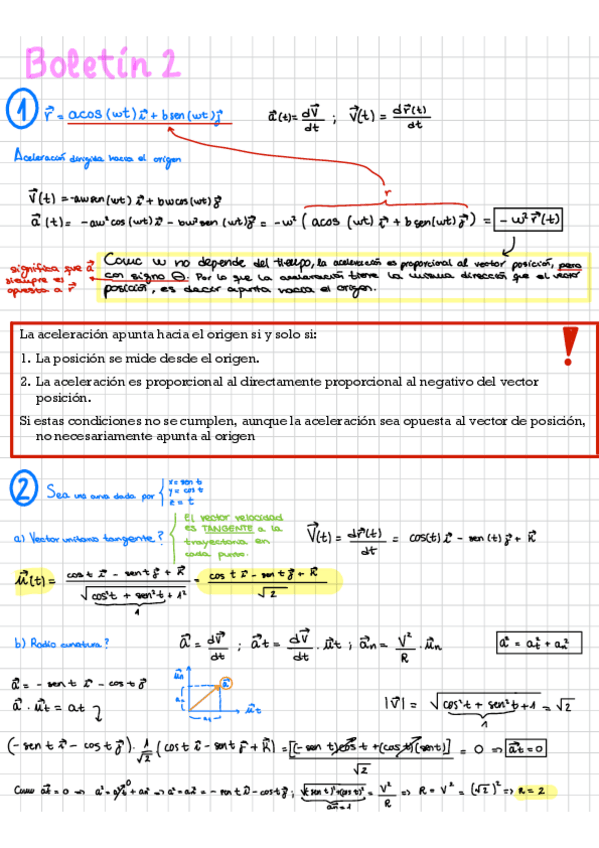 Boletín 2
① r⃗ = acos(wt)i⃗ + bsen(wt)j⃗   a⃗(t) = dv⃗/dt ; v⃗(t) = dr⃗(t)/dt
Aceleración dirigida hacia el origen
r
v⃗(t) = -awsen(wt)i⃗ + bwcos(wt)j⃗
a⃗(t) = -aw²cos(wt)i⃗ - bw²sen(wt)j⃗ = -w²(acos(wt)i⃗ + bsen(wt)j⃗) = -w² r⃗(t)
significa que a⃗ siempre es opuesta a r⃗
Como w no depende del tiempo, la aceleración es proporcional al vector posición, pero
con signo ⊖. Por lo que la aceleración tiene la misma dirección que el vector
posición, es decir apunta hacia el origen.
La aceleración apunta hacia el origen si y solo si:
1. La posición se mide desde el origen.
2. La aceleración es proporcional al directamente proporcional al negativo del vector
posición.
Si estas condiciones no se cumplen, aunque la aceleración sea opuesta al vector de posición,
no necesariamente apunta al origen
!
② Sea una curva dada por { x = sen t
y = cos t
z = t
a) Vector unitario tangente? { El vector velocidad
es TANGENTE a la
trayectoria en
cada punto.
v⃗(t) = dr⃗(t)/dt = cos(t)i⃗ - sen(t)j⃗ + k⃗
u⃗(t) = (cos t i⃗ - sen t j⃗ + k⃗)/√(cos²t + sen²t + 1²) = (cos t i⃗ - sen t j⃗ + k⃗)/√2
1
b) Radio curvatura?   a⃗ = dv⃗/dt ; a⃗t = dv⃗/dt · u⃗t ; a⃗n = v²/R · u⃗n   a² = at² + an²
a⃗ = -sen t i⃗ - cos t j⃗
u⃗n a⃗ an at u⃗t
a⃗ · u⃗t = at   |v⃗| = √(cos²t + sen²t + 1) = √2
1
(-sen t i⃗ - cos t j⃗) · 1/√2 (cos t i⃗ - sen t j⃗ + k⃗) = [(-sen t)cos t + (cos t)(sen t)]/√2 = 0 ⇒ a⃗t = 0
Como a⃗t = 0 ⇒ a² = at² + an² ⇒ a² = an² ⇒ -sen t i⃗ - cos t j⃗ ; √((sen t)² + (cos t)²) = v²/R ⇒ R = v² = (√2)² ⇒ R = 2
an = 1